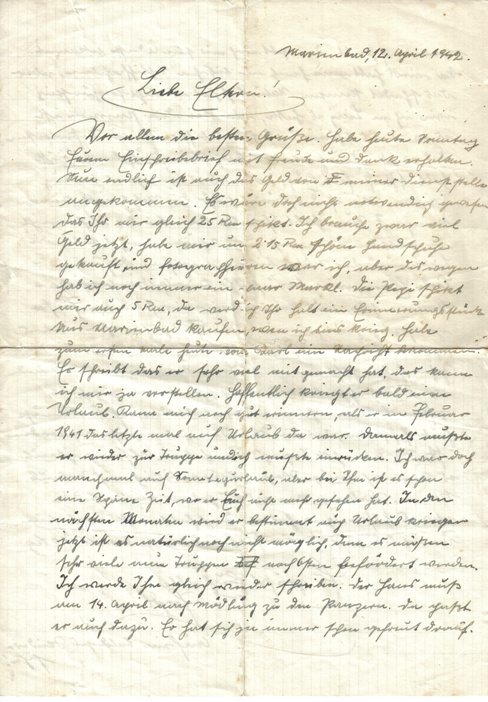 Marienbad, 12. April 1942.
Liebe Eltern!
Vor allem die besten Grüße. Habe heute Sonntag
Euren Einschreibebrief mit Freude und Dank erhalten.
Nun endlich ist auch das Geld von meiner Dienststelle
angekommen. Es wäre doch nicht notwendig gewesen
das Ihr mir gleich 25 Rm schickt. Ich brauche zwar viel
Geld jetzt, habe mir um 2·15 Rm schöne Handschuhe
gekauft, und fotographieren war ich, aber deswegen
hab ich noch immer ein paar Markl. Die Pepi schickt
mir auch 5 Rm, da werd ich Ihr halt ein Erinnerungsstück
aus Marienbad kaufen, wenn ich eins krieg. Habe
zum ersten male heute von Karl eine Nachricht bekommen.
Er schreibt das er sehr viel mit gemacht hat, das kann
ich mir ja vorstellen. Hoffentlich kriegt er bald einen
Urlaub. Kann mich noch gut erinnern, als er im Februar
1941 das letzte mal auf Urlaub da war. Damals mußte
er wieder zur Truppe und ich mußte einrücken. Ich war doch
manchmal auf Sonntagsurlaub, aber bei Ihm ist es schon
eine schöne Zeit, wo er Euch nicht mehr gesehen hat. In den
nächsten Monaten wird er bestimmt auf Urlaub kriegen
jetzt ist es natürlich noch nicht möglich, denn es müssen
sehr viele neue Truppen nach Osten befördert werden.
Ich werde Ihm gleich wieder schreiben. Der Hans muß
am 14. April nach Mödling zu den Panzern. Da paßt
er auch dazu. Er hat sich ja immer schon gefreut drauf.